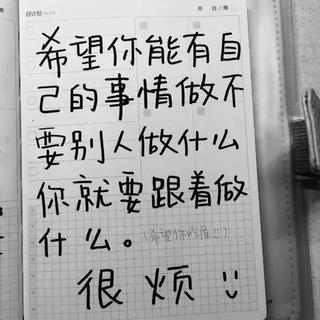 日计划 TO DO
月 日/周
希望你能有自
己的事情做不
要别人做什么
你就要跟着做
什么。(希望你吃屎!!)
很烦